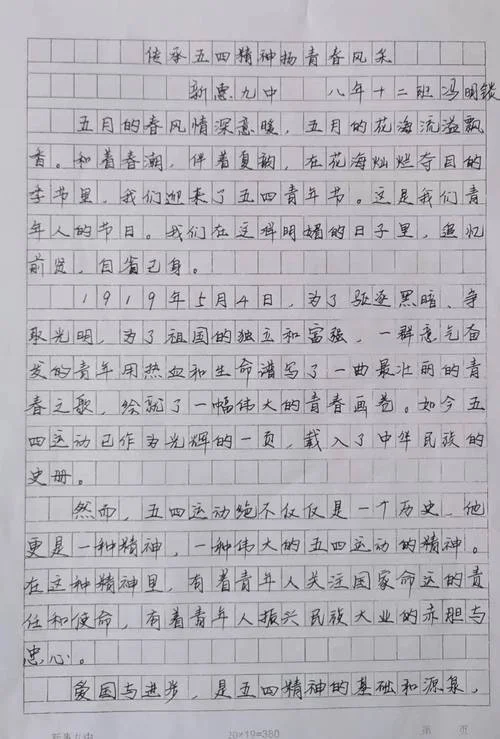 传承五四精神扬青春风采
新惠九中 八年十二班冯明锁
五月的春风情深意暖，五月的花海流溢飘
香。和着春潮，伴着夏韵，在花海灿烂夺目的
季节里，我们迎来了五四青年节。这是我们青
年人的节日。我们在这样明媚的日子里，追忆
前贤，自省己身。
1919年5月4日，为了驱逐黑暗、争
取光明，为了祖国的独立和富强，一群意气奋
发的青年用热血和生命谱写了一曲最壮丽的青
春之歌，绘就了一幅伟大的青春画卷。如今五
四运动已作为光辉的一页，载入了中华民族的
史册。
然而，五四运动绝不仅仅是一个历史，他
更是一种精神，一种伟大的五四运动的精神。
在这种精神里，有着青年人关注国家命运的责
任和使命，有着青年人振兴民族大业的赤胆与
忠心。
爱国与进步，是五四精神的基础和源泉，
新惠九中 20×19=380 第 页